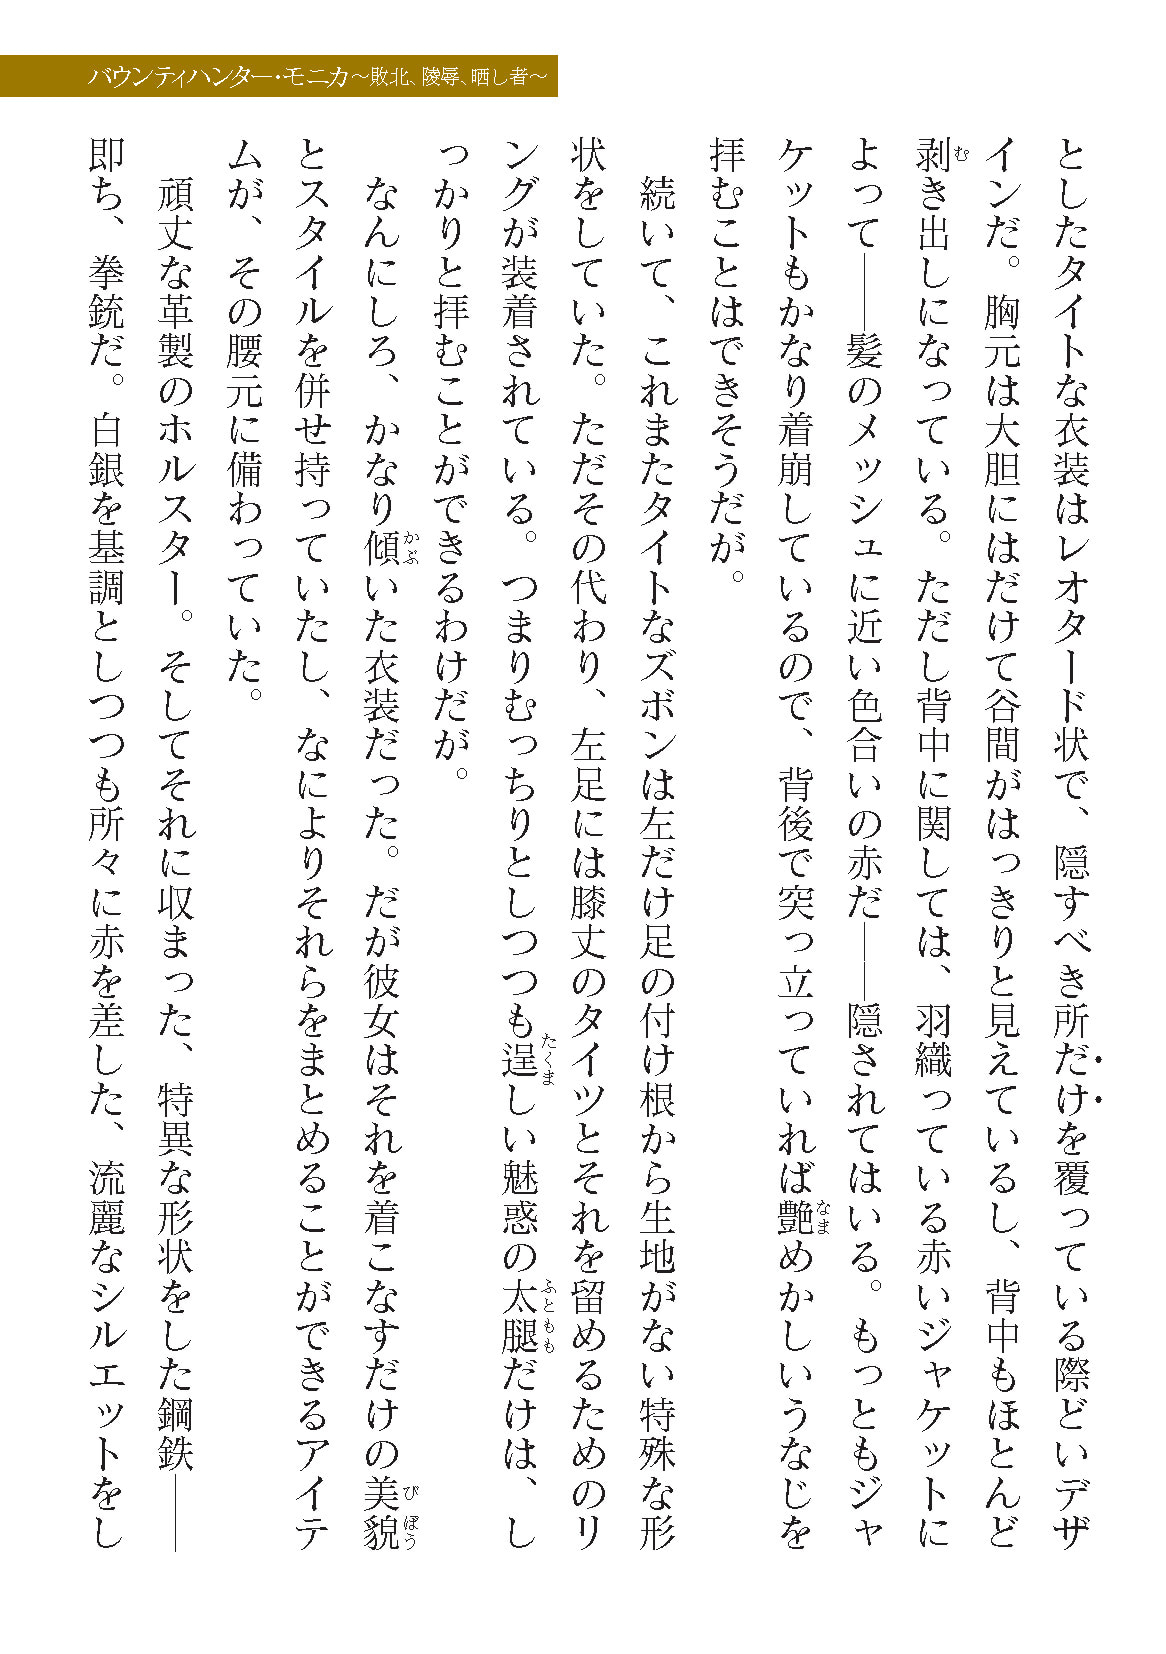 バウンティハンター・モニカ～敗北、陵辱、晒し者～
としたタイトな衣装はレオタード状で、隠すべき所だけを覆っている際どいデザ
インだ。胸元は大胆にはだけて谷間がはっきりと見えているし、背中もほとんど
剥き出しになっている。ただし背中に関しては、羽織っている赤いジャケットに
よって――髪のメッシュに近い色合いの赤だ――隠されてはいる。もっともジャ
ケットもかなり着崩しているので、背後で突っ立っていれば艶めかしいうなじを
拝むことはできそうだが。
続いて、これまたタイトなズボンは左だけ足の付け根から生地がない特殊な形
状をしていた。ただその代わり、左足には膝丈のタイツとそれを留めるためのリ
ングが装着されている。つまりむっちりとしつつも逞しい魅惑の太腿だけは、し
っかりと拝むことができるわけだが。
なんにしろ、かなり傾いた衣装だった。だが彼女はそれを着こなすだけの美貌
とスタイルを併せ持っていたし、なによりそれらをまとめることができるアイテ
ムが、その腰元に備わっていた。
頑丈な革製のホルスター。そしてそれに収まった、特異な形状をした鋼鉄――
即ち、拳銃だ。白銀を基調としつつも所々に赤を差した、流麗なシルエットをし